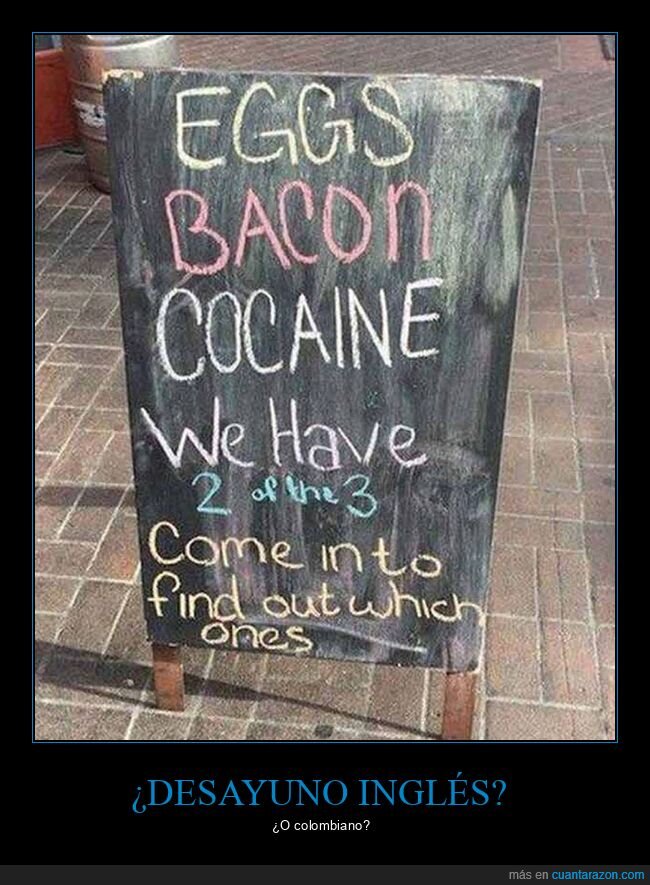 EGGS
BACON
COCAINE
We Have
2 of the 3
Come in to
find out which
ones
¿DESAYUNO INGLÉS?
¿O colombiano?
más en cuantarazon.com